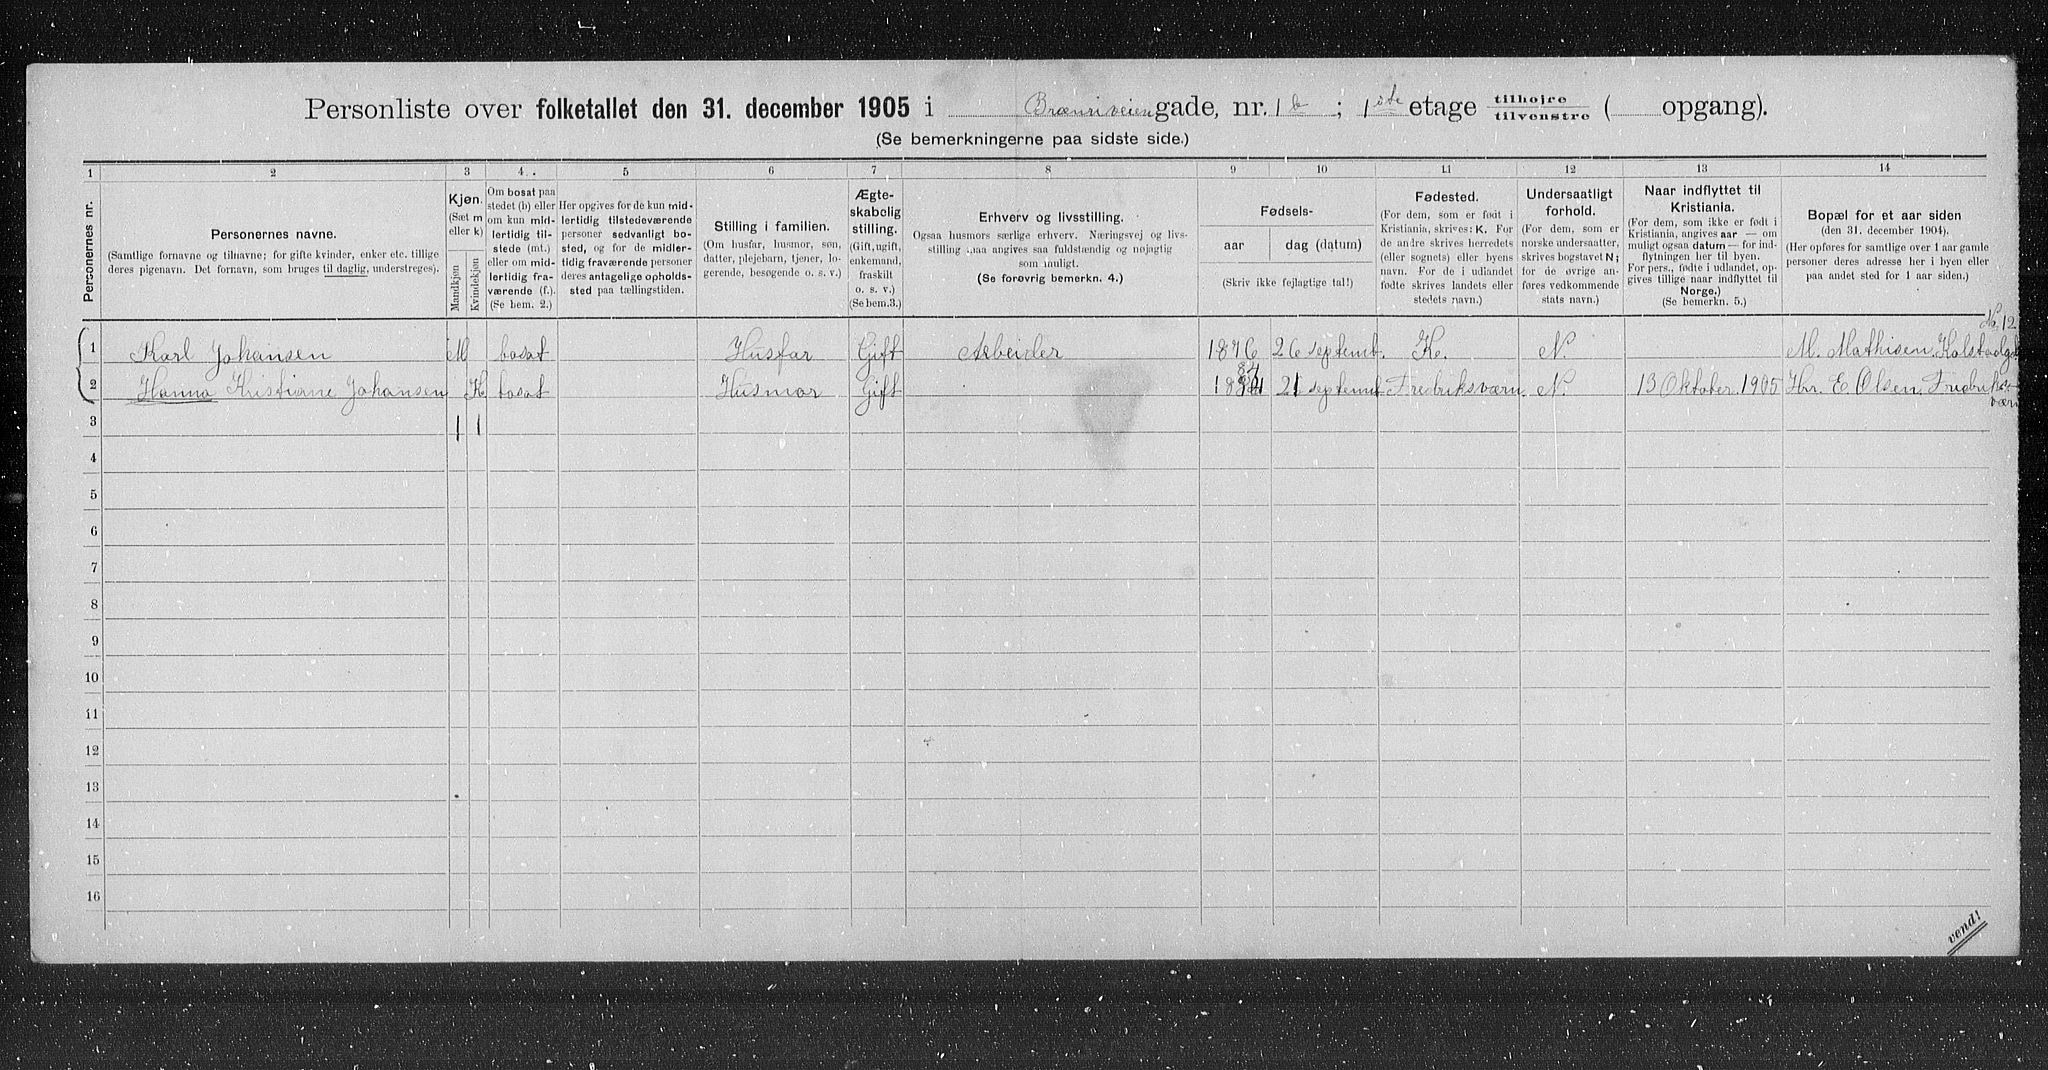 Personliste over folketallet den 31. december 1905 i Brænriveien gade, nr. 1 b ; 1 ste etage tilhøjre tilvenstre ( opgang).
(Se bemerkningerne paa sidste side.)
1 2 3 4. 5 6 7 8 9 10 11 12 13 14
Personernes nr.
Personernes navne.
(Samtlige fornavne og tilnavne; for gifte kvinder, enker etc. tillige
deres pigenavn. Det fornavn, som bruges til daglig, understreges).
Kjøn.
(Sæt m
eller k)
Mandkjøn
Kvindekjøn
Om bosat paa
stedet (b) eller
om kun mid-
lertidig til-
stede (mt.)
eller om mid-
lertidig fra-
værende (f.).
(Se bem. 2.)
Her opgives for de kun mid-
lertidig tilstedeværende
personer sedvanligt bo-
sted, og for de midler-
tidig fraværende personer
deres antagelige opholds-
sted paa tællingstiden.
Stilling i familien.
(Om husfar, husmor, søn,
datter, plejebarn, tjener, lo-
gerende, besøgende o. s. v.)
Ægte-
skabelig
stilling.
(Gift, ugift,
enkemand,
fraskilt
o. s. v.)
(Se bem. 3.)
Erhverv og livsstilling.
Ogsaa husmors særlige erhverv. Næringsvej og livs-
stilling maa angives saa fuldstændig og nøjagtig
som muligt.
(Se forøvrig bemerkn. 4.)
Fødsels-
aar dag (datum)
(Skriv ikke fejlagtige tal!)
Fødested.
(For dem, som er født i
Kristiania, skrives: K. For
de andre skrives herredets
(eller sognets) eller byens
navn. For de i udlandet
fødte skrives landets eller
stedets navn.)
Undersaatligt
forhold.
(For dem, som er
norske undersaatter,
skrives bogstavet N;
for de øvrige an-
føres vedkommende
stats navn.)
Naar indflyttet til
Kristiania.
(For dem, som ikke er født i
Kristiania, angives aar — om
muligt ogsaa datum — for ind-
flytningen her til byen.
For pers., fødte i udlandet, op-
gives tillige naar indflyttet til
Norge.)
(Se bemerkn. 5.)
Bopæl for et aar siden
(den 31. december 1904).
(Her opføres for samtlige over 1 aar gamle
personer deres adresse her i byen eller
paa andet sted for 1 aar siden.)
No. 12
1 Karl Johansen M bosat Husfar Gift Arbeider 1876 26 septemb. K. N. M. Mathisen. Kolstadgd
84
2 Hanna Kristiane Johansen K bosat Husmor Gift 21 septembr Fredriksværn. N. 13 Oktober. 1905 Hr. E Olsen. Fredriks-
værn
3 1 1
4
5
6
7
8
9
10
11
12
13
14
15
16
vend!